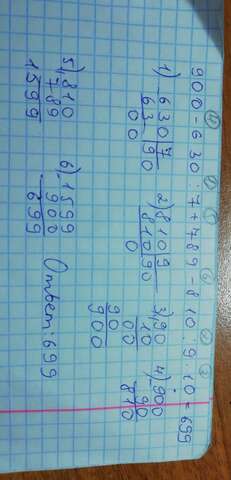 900 - 630 : 7 + 789 - 810 : 9 · 10 = 699
1) 630 7 2) 810 9 3) 90 4) 900
63 90 81 90 10 90
0 0 00 810
0 90
900
5) 810 6) 1599 Ответ: 699
789 900
1599 699